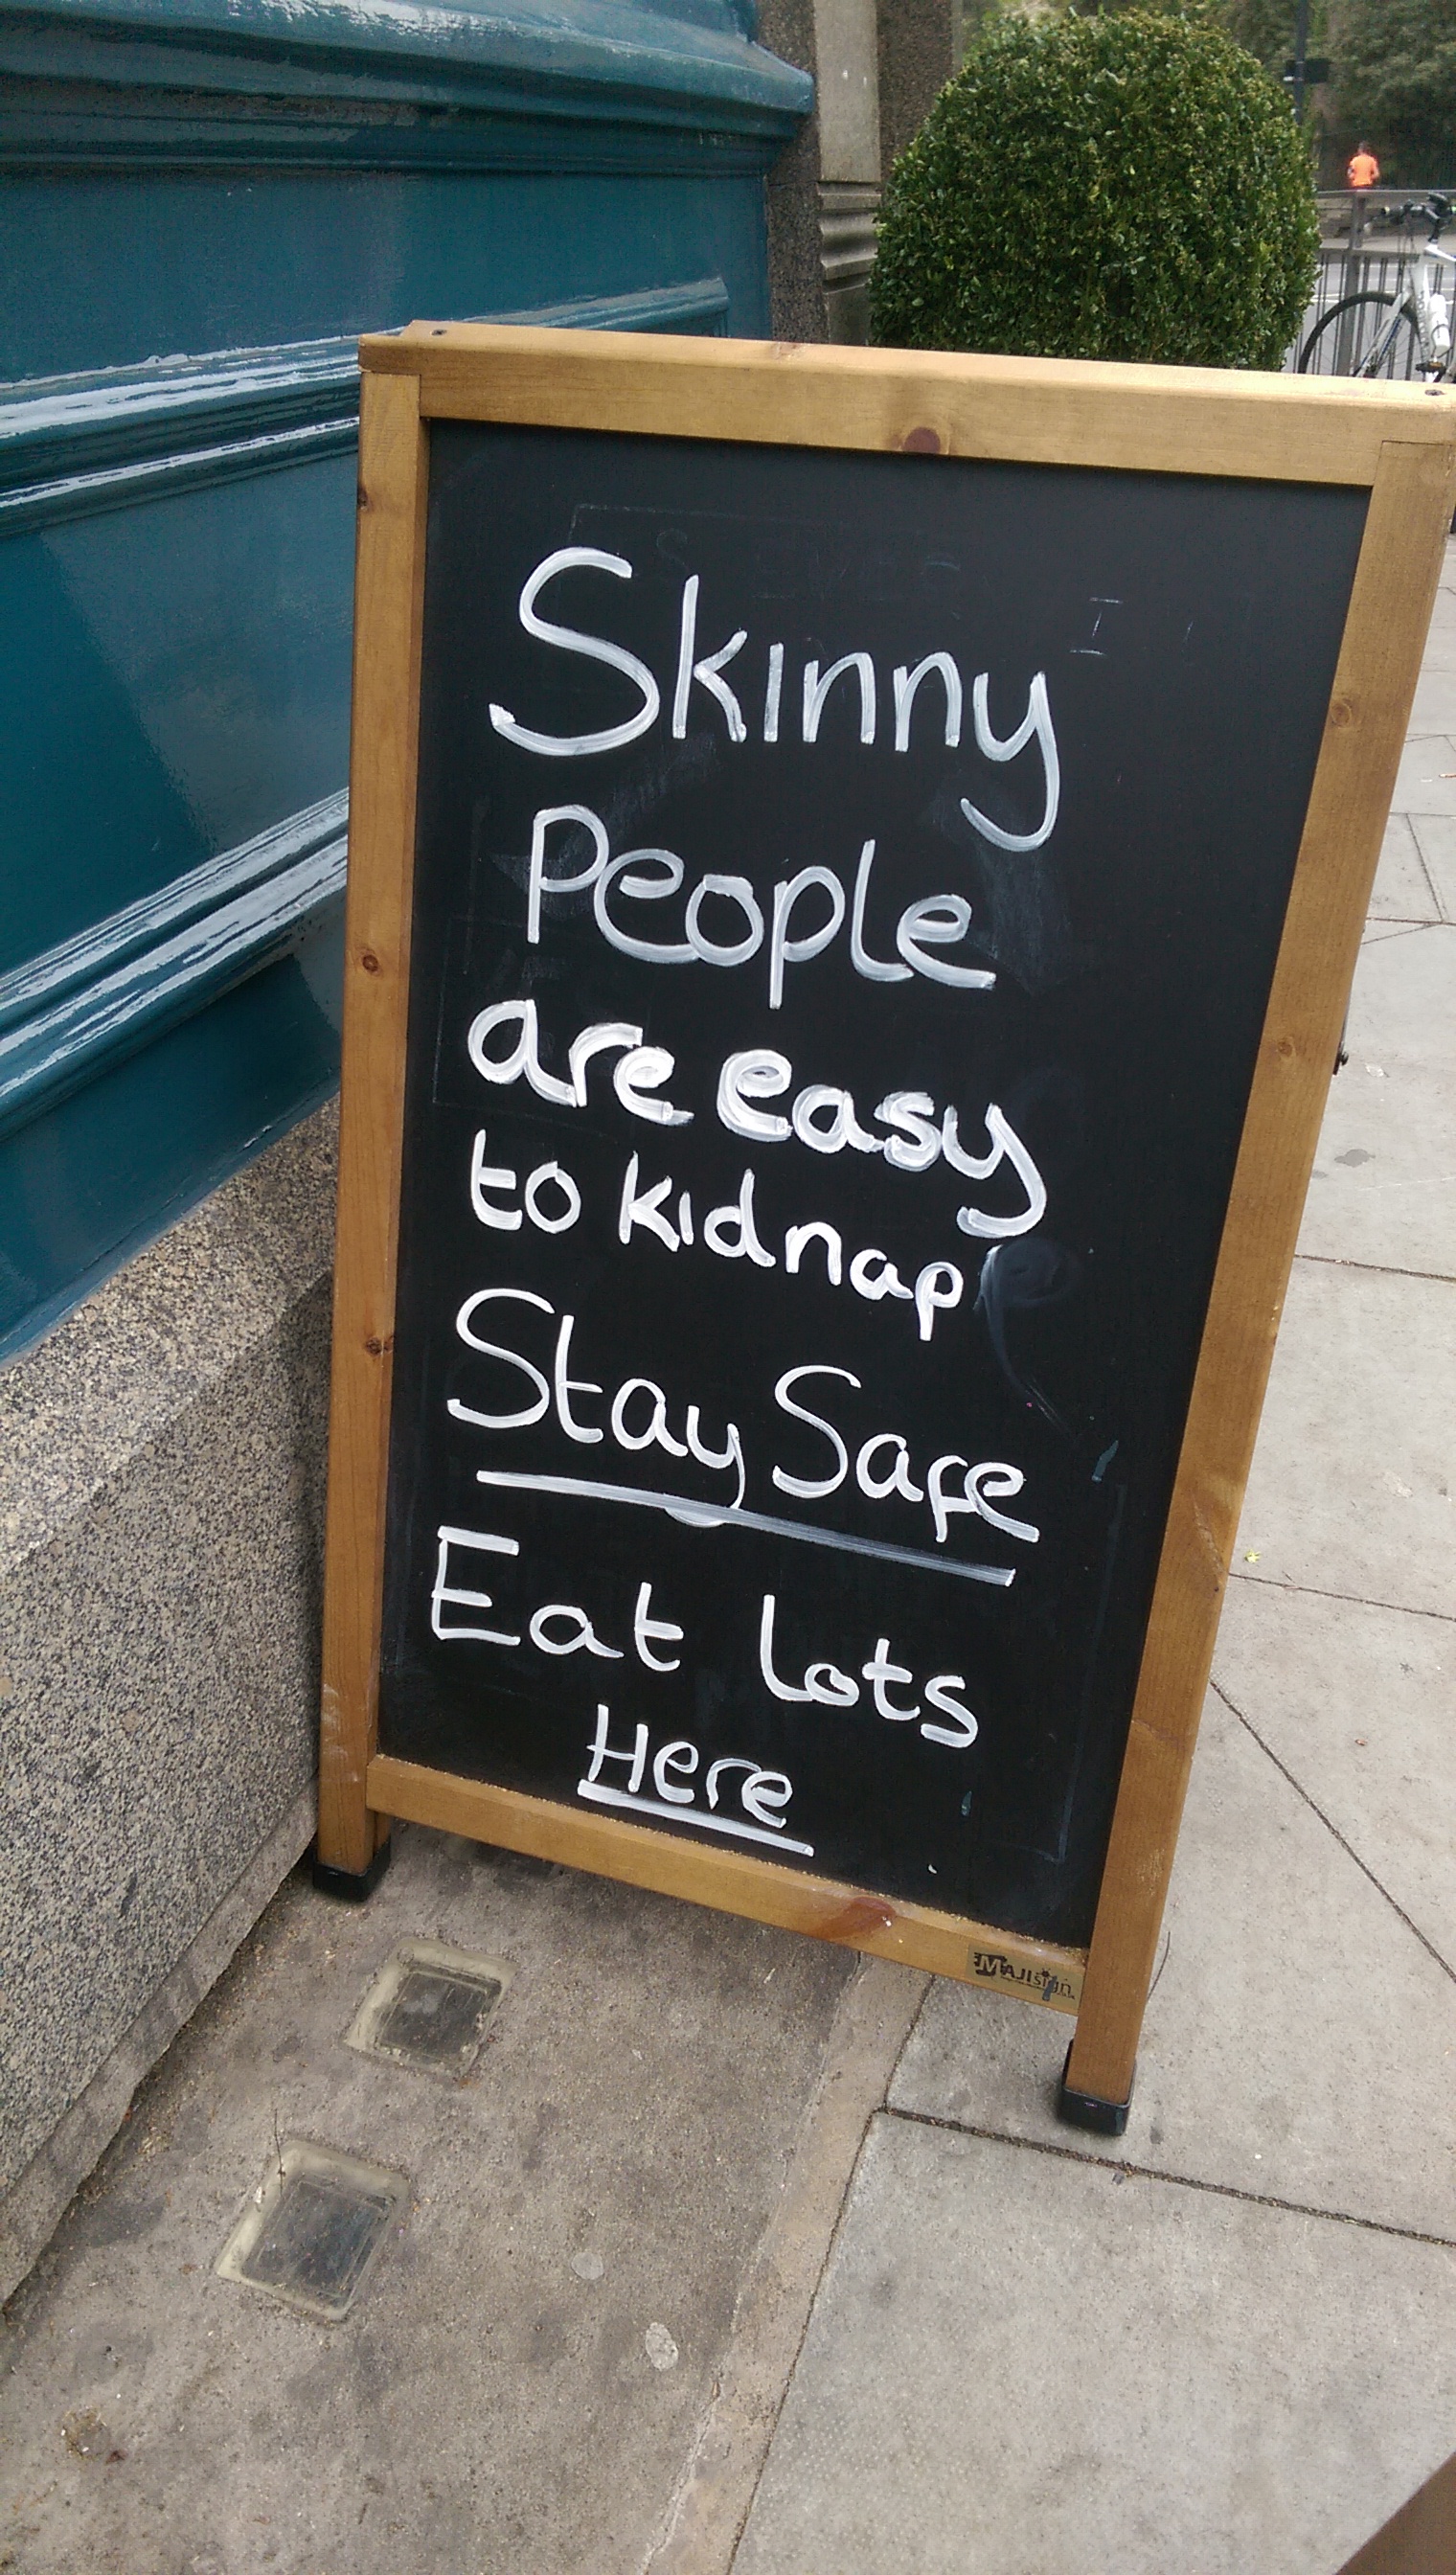 Skinny
People
are easy
to kidnap
Stay Safe
Eat lots
Here
MAJIsign